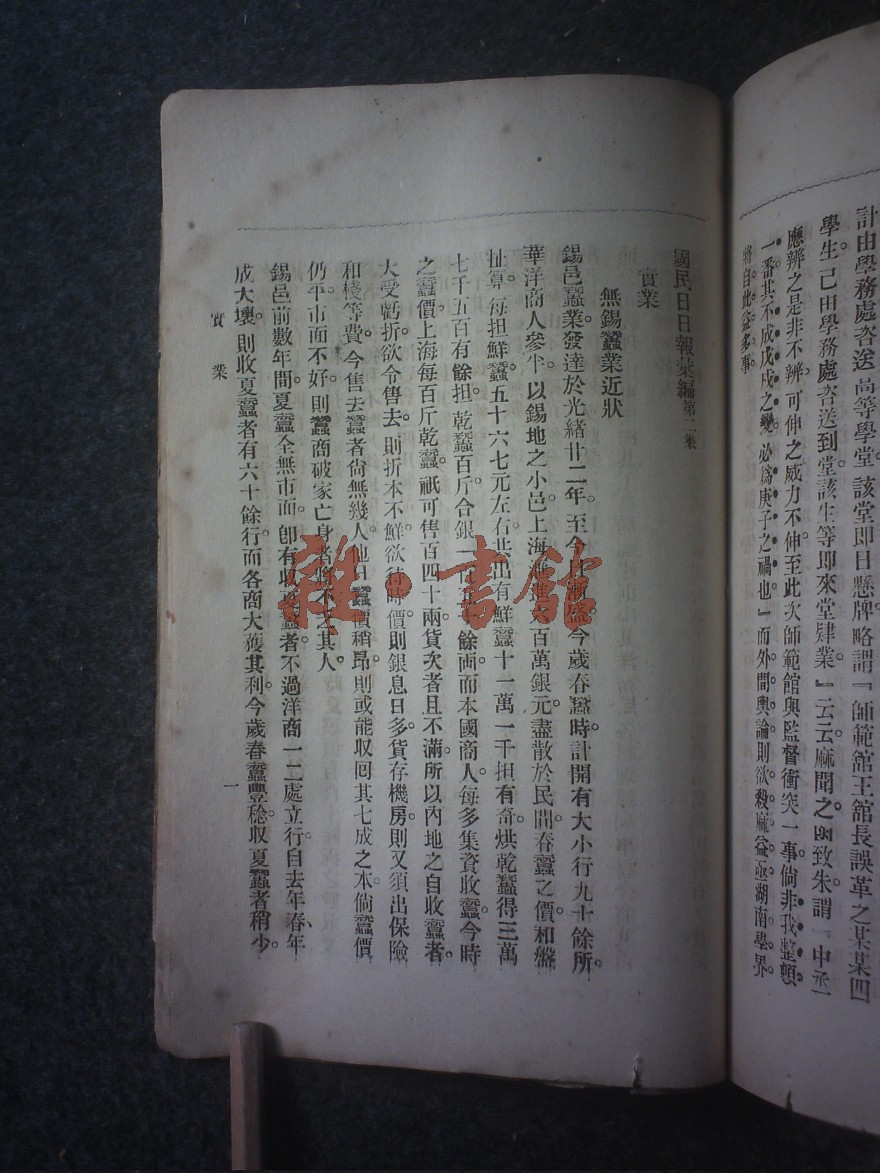 計由學務處咨送高等學堂。該堂即日懸牌略謂『師範館王館長誤革之某某四
學生。已由學務處咨送到堂該生等即來堂肄業。』云云麻聞之。函致朱謂『中丞
應辨之是非不辨。可伸之威力不伸至此次師範館與監督衝突一事倘非我整頓
一番其不成戊戌之變。必爲庚子之禍也。』而外間輿論則欲殺麻益亟湖南學界。
將自此益多事。
國民日日報彙編第二集
實業
無錫蠶業近狀
錫邑蠶業發達於光緒廿二年。至今日漸盛今歲春蠶時。計開有大小行九十餘所。
華洋商人參半。以錫地之小邑上海滙進六百萬銀元。盡散於民間春蠶之價。和盤
扯算。每担鮮蠶五十六七元左右共出有鮮蠶十一萬一千担有奇。烘乾蠶得三萬
七千五百有餘担。乾蠶百斤合銀一百五十餘両而本國商人。每多集資收蠶。今時
之蠶價。上海每百斤乾蠶。祇可售百四十兩貨次者且不滿。所以內地之自收蠶者。
大受虧折欲令售去。則折本不鮮欲待時價。則銀息日多貨存機房。則又須出保險
和棧等費。今售去蠶者尙無幾人。他日蠶價稍昂。則或能收囘其七成之本。倘蠶價
仍平。市面不好。則蠶商破家亡身者將不乏其人。
錫邑前數年間。夏蠶全無市面。卽有收夏蠶者。不過洋商一二處立行。自去年春年
成大壞。則收夏蠶者有六十餘行。而各商大獲其利。今歲春蠶豐稔。收夏蠶者稍少。
實業
一
雜·書館